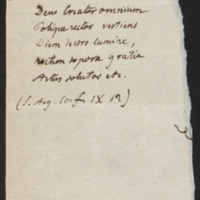 Deus Creator omnium
Polique rector vestiens
Diem decoro lumine,
noctem sopora gratia
Artus solutos etc.
(S. Aug. Conf. IX 12)